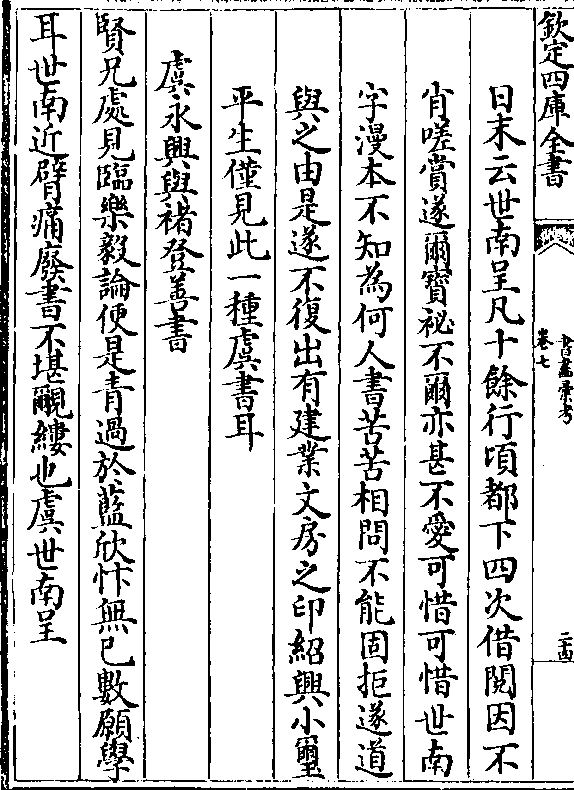 欽定四庫全書
書畫彙考
卷七
二十四
日末云世南呈凡十餘行頃都下四次借閱因不
肯嗟賞遂爾寶祕不爾亦甚不愛可惜可惜世南
字漫本不知為何人書苦苦相問不能固拒遂道
與之由是遂不復出有建業文房之印紹興小璽
平生僅見此一種虞書耳
虞永興與褚登善書
賢兄處見臨樂毅論便是青過於藍欣忭無已數願學
耳世南近臂痛廢書不堪覼縷也虞世南呈